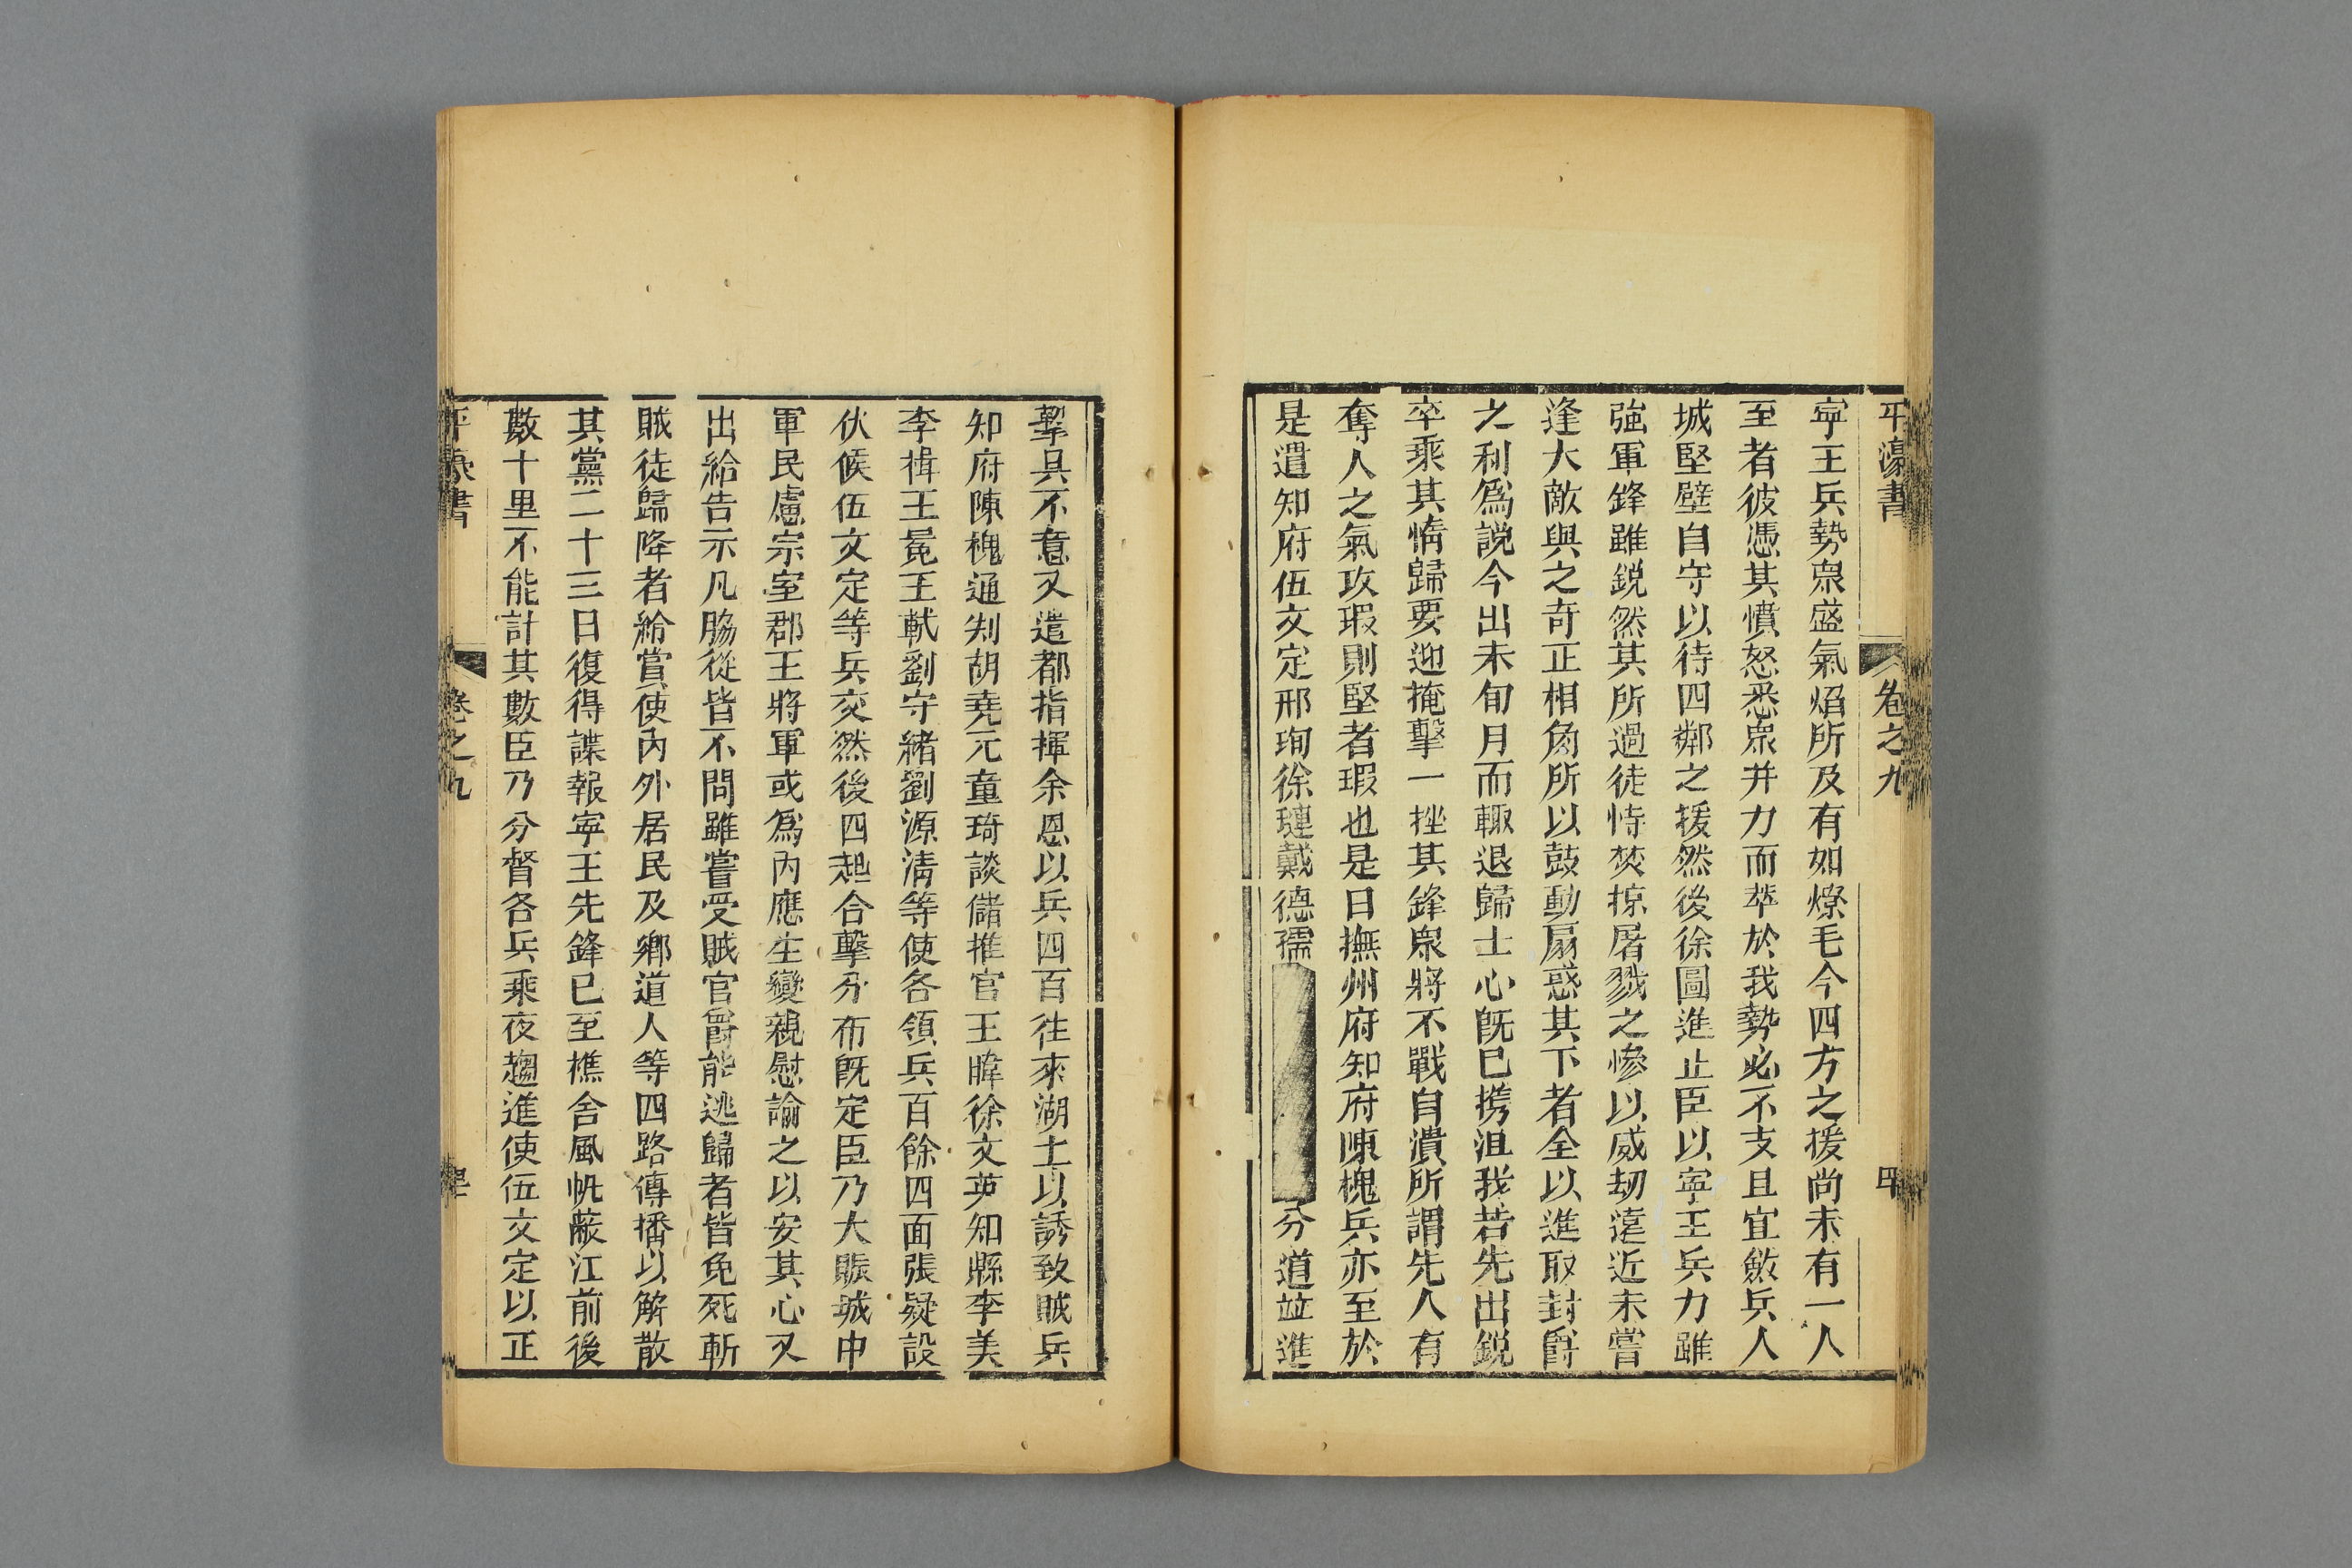 平濠書 卷之九 四
寕王兵勢衆盛氣焰所及有如燎毛今四方之援尚未有一人
至者彼憑其憤怒悉衆并力而萃於我勢必不支且宜斂兵人
城堅壁自守以待四鄰之援然後徐圖進止臣以寕王兵力雖
強軍鋒雖鋭然其所過徒恃焚掠屠戮之慘以威刼遠近未嘗
逢大敵與之奇正相角所以鼓動扇惑其下者全以進取封爵
之利爲説今出未旬月而輙退歸士心旣已携沮我若先出鋭
卒乘其惰歸要迎掩擊一挫其鋒衆將不戰自潰所謂先人有
奪人之氣攻瑕則堅者瑕也是日撫州府知府陳槐兵亦至於
是遣知府伍文定邢珣徐璉戴德孺分道竝進
擊其不意又遣都指揮余恩以兵四百徃來湖上以誘致賊兵
知府陳槐通判胡堯元童琦談儲推官王暐徐文英知縣李美
李楫王冕王軾劉守緒劉源淸等使各領兵百餘四面張疑設
伏候伍文定等兵交然後四起合擊分布旣定臣乃大賑城中
軍民慮宗室郡王將軍或爲内應生變親慰諭之以安其心又
出給告示凡脇從皆不問雖嘗受賊官爵能逃歸者皆免死斬
賊徒歸降者給賞使内外居民及鄉道人等四路傳播以解散
其黨二十三日復得諜報寕王先鋒已至樵舍風帆蔽江前後
數十里不能計其數臣乃分督各兵乘夜趨進使伍文定以正
平濠書 卷之九